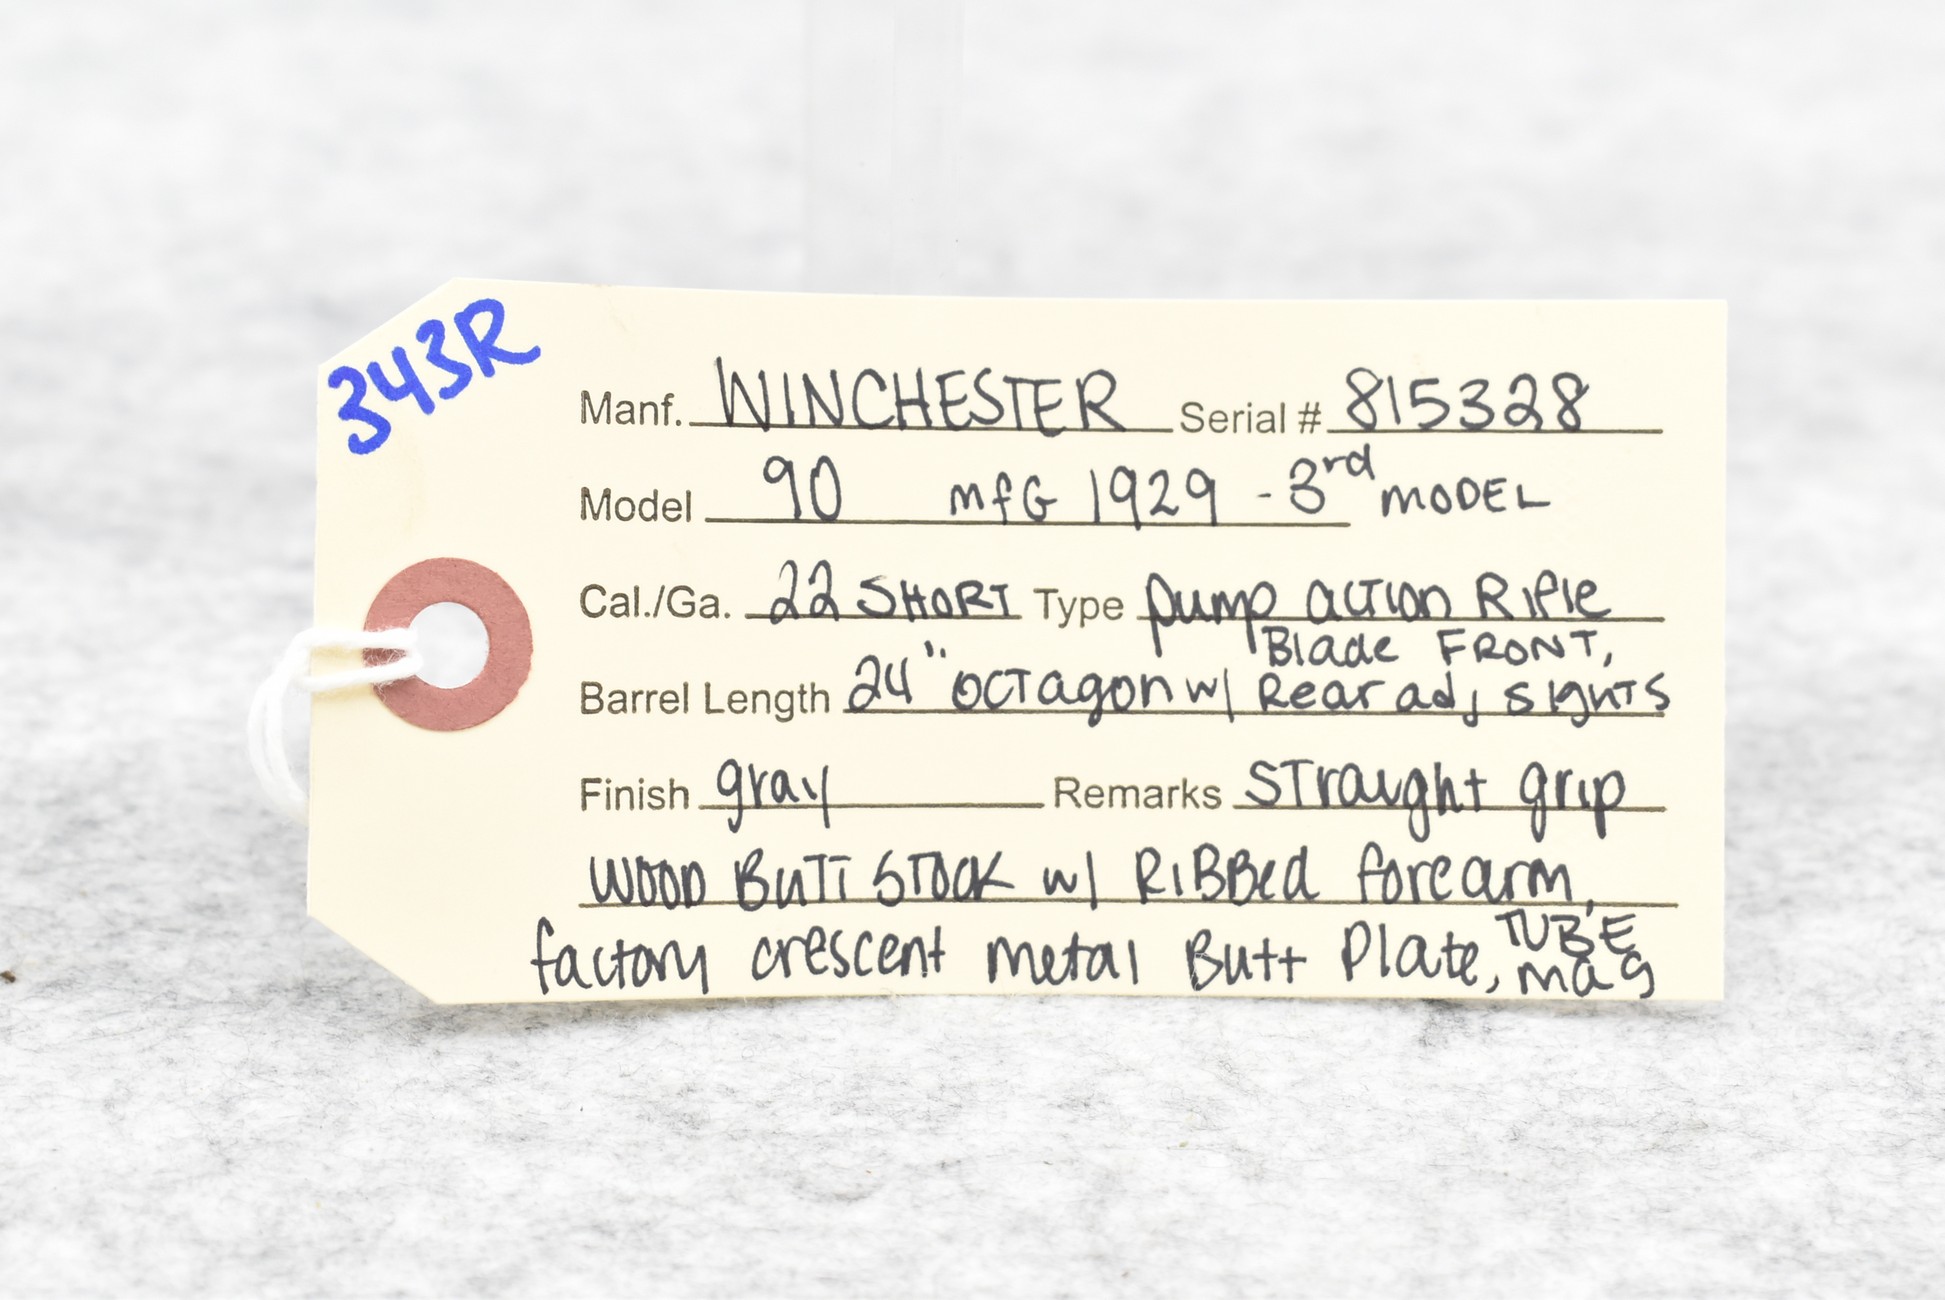 343R
Manf. WINCHESTER Serial # 815328
Model 90 MFG 1929 - 3rd MODEL
Cal./Ga. 22 SHORT Type pump action Rifle
Blade FRONT,
Barrel Length 24" octagon w/ Rear adj sights
Finish gray Remarks straight grip
WOOD BUTT STOCK w/ RIBBed forearm,
factory crescent metal Butt Plate, TUBE
mag